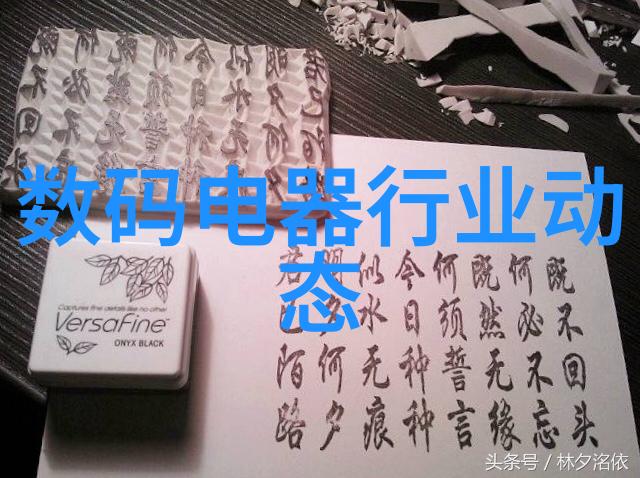 数码电器行业动态
既不回头
何必不忘
既然无缘
何须誓言
今日种种
似水无痕
明夕何夕
君已陌路
Captures fine details like no other
VersaFine
ONYX BLACK
头条号 / 林夕洺依